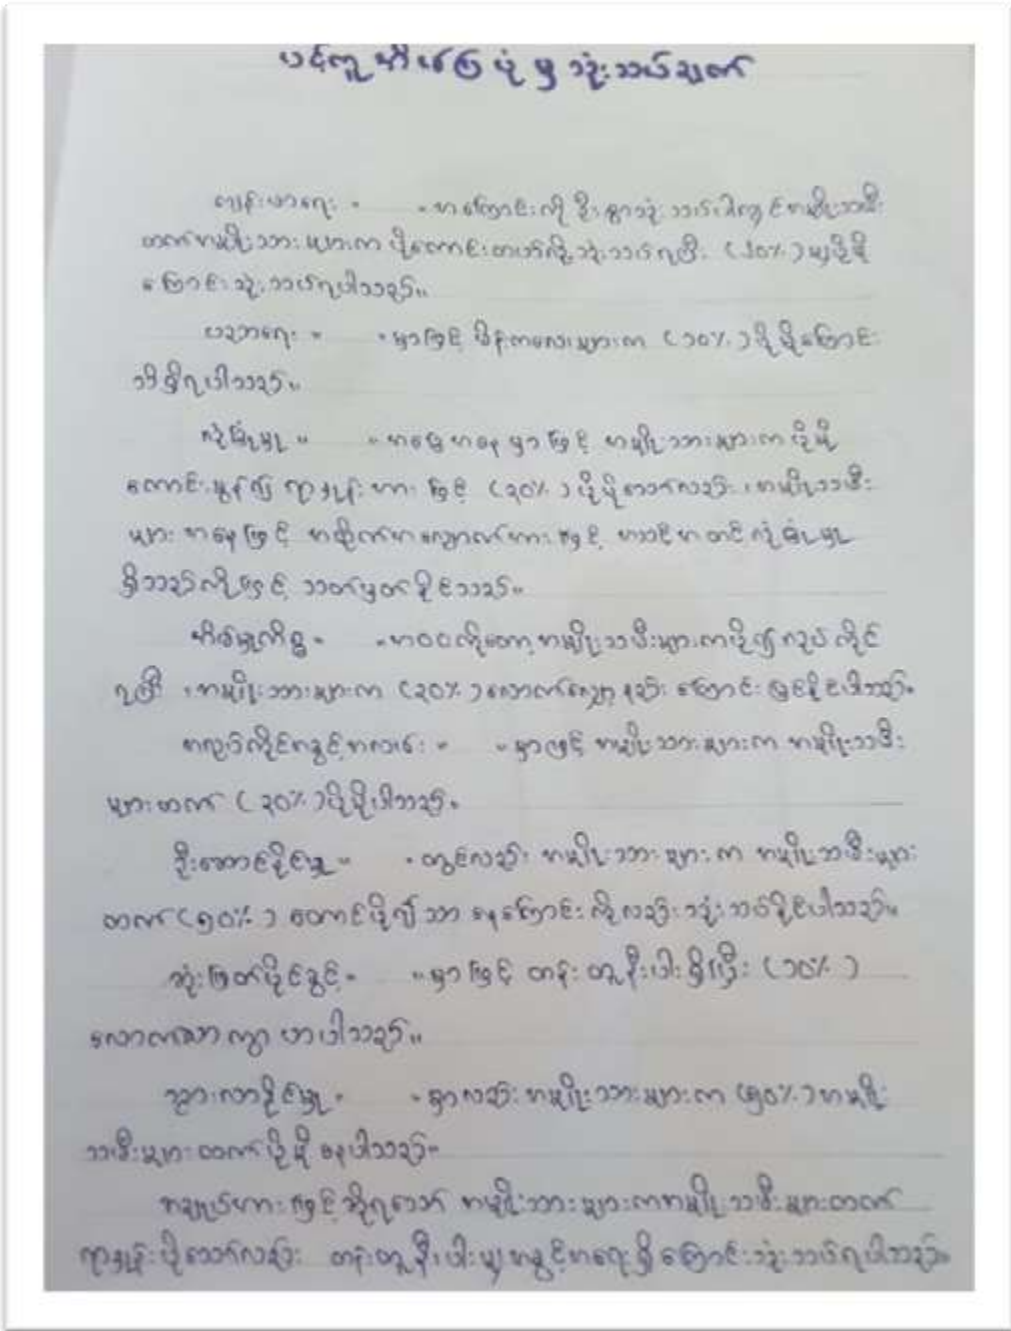 ပင့်ကူအိမ်ပြပုံမှ သုံးသပ်ချက်
ကျန်းမာရေး - - အကြောင်းကို ဦးစွာသုံးသပ်ပါကျွင်အမျိုးသမီး
ထက်အမျိုးသားများက ပိုကောင်းတယ်လို့သုံးသပ်ရပြီး (၁၀%) မျှပိုမို
ကြောင်းသုံးသပ်ရပါသည်။
ပညာရေး - - မှာဖြင့် မိန်းကလေးများက (၁၀%) ပိုမိုကြောင်း
သိရှိရပါသည်။
လုံခြုံမှု - - အခြေအနေမှာဖြင့် အမျိုးသားများက ပိုမို
ကောင်းမွန်၍ ရာနှုန်းအားဖြင့် (၃၀%) ပိုမိုသော်လည်း အမျိုးသမီး
များအနေဖြင့် အထိုက်အလျောက်အားဖြင့် အသင့်အတင့်လုံခြုံမှု
ရှိသည်ဟုဖြင့် သတ်မှတ်နိုင်သည်။
အိမ်မှုကိစ္စ - - အဝဝကိုတော့ အမျိုးသမီးများကပို၍လုပ်ကိုင်
ရပြီး အမျိုးသားများက (၃၀%) လောက်လျော့နည်းကြောင်းမြင်နိုင်ပါသည်။
အလုပ်ကိုင်အခွင့်အလမ်း - - မှာဖြင့် အမျိုးသားများက အမျိုးသမီး
များထက် (၃၀%) ပိုမိုပါသည်။
ဦးဆောင်နိုင်မှု - - တွင်လည်း အမျိုးသားများက အမျိုးသမီးများ
ထက် (၅၀%) တောင်ပို၍သာနေကြောင်းကိုလည်းသုံးသပ်နိုင်ပါသည်။
ဆုံးဖြတ်ပိုင်ခွင့် - - မှာဖြင့် တန်းတူနီးပါးရှိပြီး (၁၀%)
လောက်သာကွာဟပါသည်။
သွားလာနိုင်မှု - - မှာလည်းအမျိုးသားများက (၅၀%) အမျိုး
သမီးများထက်ပိုမိုနေပါသည်။
အချုပ်အားဖြင့်ဆိုရသော် အမျိုးသားများကအမျိုးသမီးများထက်
ရာနှုန်းပိုသော်လည်း တန်းတူနီးပါးမျှအခွင့်အရေးရှိကြောင်းသုံးသပ်ရပါသည်။